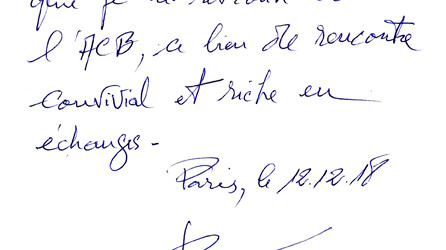 que je
l'ACB, ce lien de rencontre
convivial et riche en
échanges -
Paris, le 12.12.18